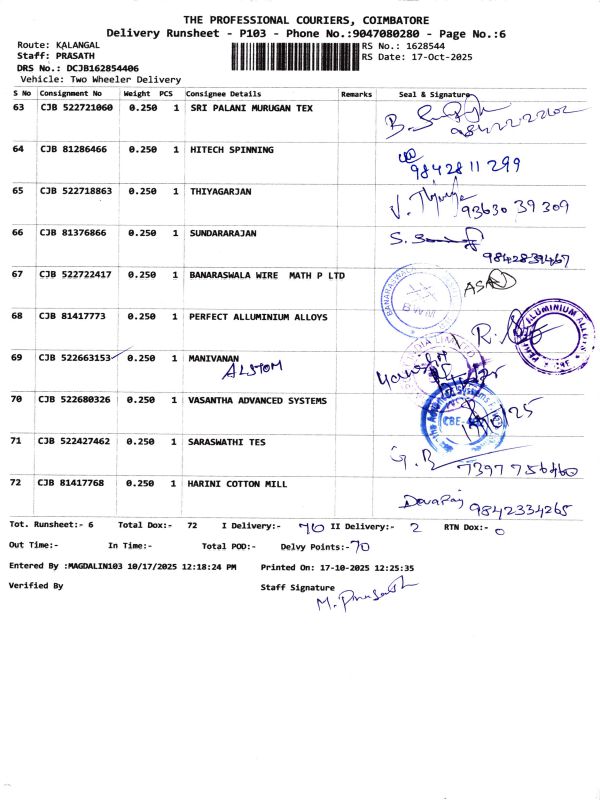 THE PROFESSIONAL COURIERS, COIMBATORE
Delivery Runsheet - P103 - Phone No.:9047080280 - Page No.:6
Route: KALANGAL RS No.: 1628544
Staff: PRASATH RS Date: 17-Oct-2025
DRS No.: DCJB162854406
Vehicle: Two Wheeler Delivery
S No Consignment No Weight PCS Consignee Details Remarks Seal & Signature
63 CJB 522721060 0.250 1 SRI PALANI MURUGAN TEX
64 CJB 81286466 0.250 1 HITECH SPINNING
98428 11 299
65 CJB 522718863 0.250 1 THIYAGARJAN
93630 39 309
66 CJB 81376866 0.250 1 SUNDARARAJAN
9842839467
67 CJB 522722417 0.250 1 BANARASWALA WIRE MATH P LTD
BWM
68 CJB 81417773 0.250 1 PERFECT ALLUMINIUM ALLOYS
ALUMINIUM ALLOYS
69 CJB 522663153 0.250 1 MANIVANAN
ALSTOM
70 CJB 522680326 0.250 1 VASANTHA ADVANCED SYSTEMS
71 CJB 522427462 0.250 1 SARASWATHI TES
7397756460
72 CJB 81417768 0.250 1 HARINI COTTON MILL
Devaraj 9842334265
Tot. Runsheet:- 6 Total Dox:- 72 I Delivery:- 70 II Delivery:- 2 RTN Dox:- 0
Out Time:- In Time:- Total POD:- Delvy Points:- 70
Entered By :MAGDALIN103 10/17/2025 12:18:24 PM Printed On: 17-10-2025 12:25:35
Verified By Staff Signature
M. Prasath